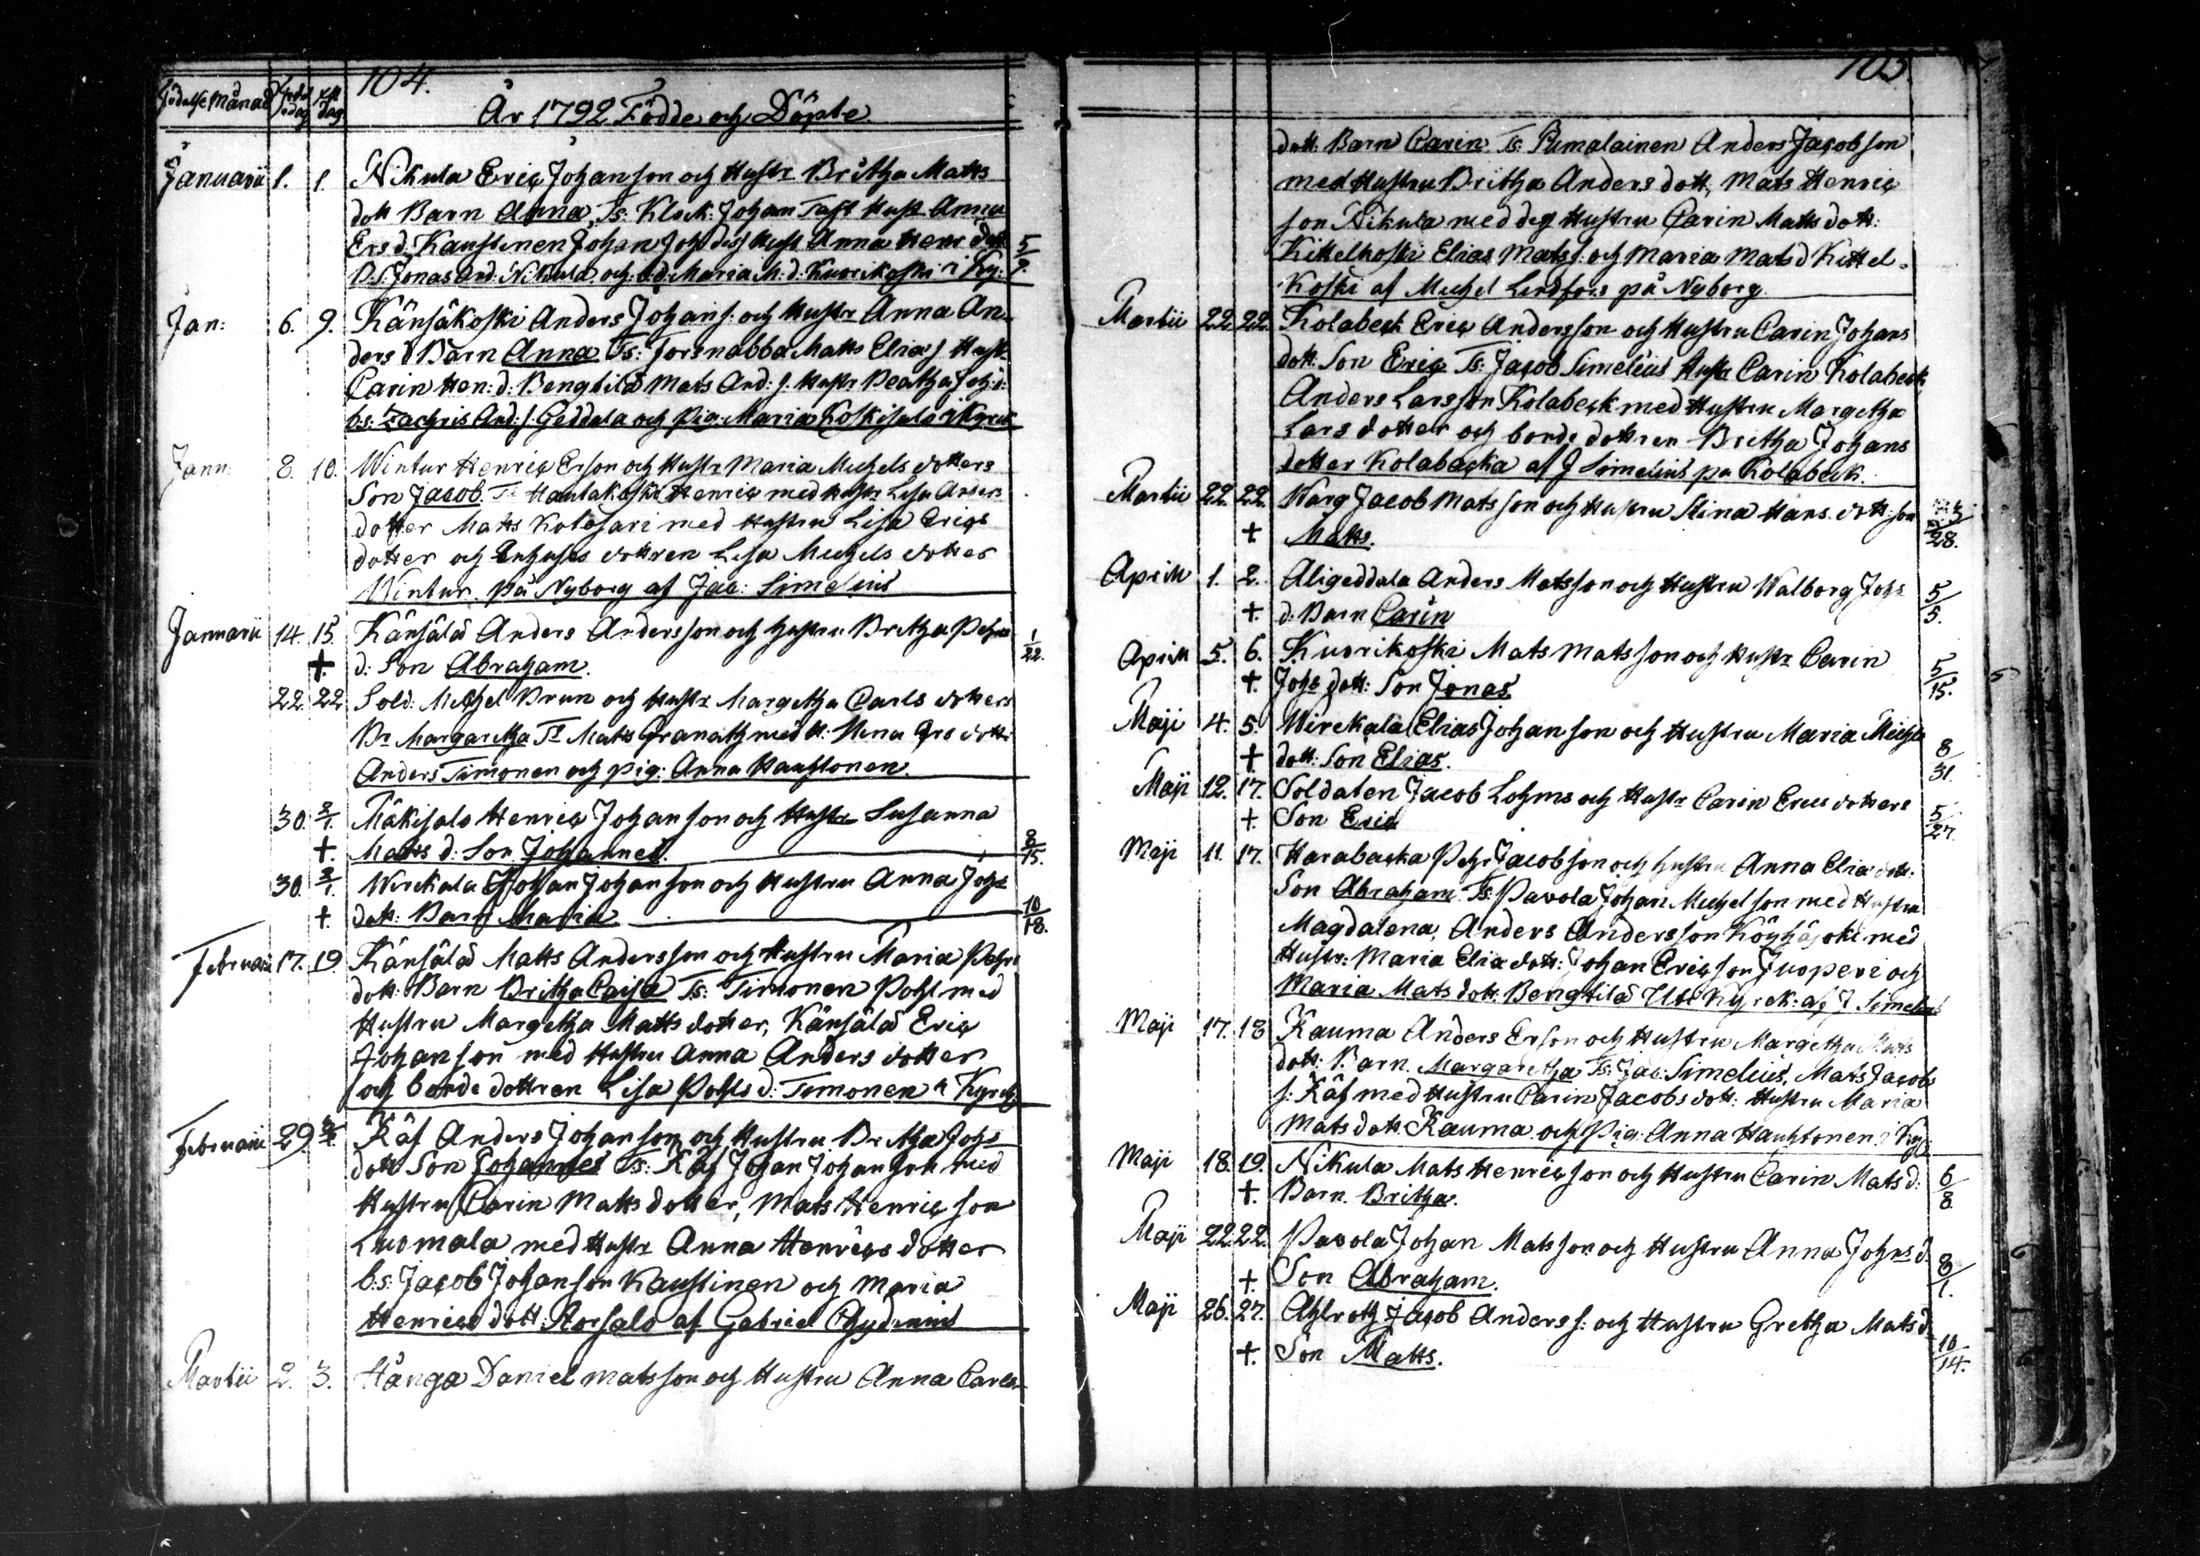 104.
Födelse Månad Född dag Xst dag
År 1792 Födde och Döpte
Januarii 1. 1. Nikula Eric Johanson och Hustr Britha Matts
dott Barn Anna, Ts: Klock: Johan Tast Hust Anna
Ers d. Kaustinen Johan Joh: des Hust Anna Henr dott 5/9.
D.S. Jonas And: Nikula och bd: Maria M: d: Kuorikoski i Ky:
Jan: 6. 9. Känsäkoski Anders Johans: och Hustr Anna An-
ders d Barn Anna Ts: Forsnabba Matts Elia s Hust
Carin Hen: d: Bengtilä Mats And: s. Hustr Beatha Joh: d:
b.s: Zachris And: s: Geddala och Pig: Maria Koskisalo i Kyrck
Jann: 8. 10. Wintur Henric Erson och Hustr Maria Michels dotters
Son Jacob. Ts Hautakoski Henric med Hustr Lisa Anders
dotter Matts Kolasari med Hustru Lisa Erigs
dotter och Enhuses dottren Lisa Michels dotter
Wintur. på Nyborg af Jac: Simelius
Januarii 14. 15. Känsälä Anders Andersson och hustru Britha Pehrs 1/22.
+ d: Son Abraham.
22. 22 Sold: Michel Brun och Hustr Margetha Carls dotters
Br Margaretha Ts Matts Granath med H: Stina Ers dott:
Anders Timonen och pig: Anna Hauhtonen.
30. 2/1. Mäkisalo Henric Johanson och Hustr Susanna
+. Matts d: Son Johannes. 8/15.
30. 2/1. Wirckala Johan Johanson och Hustru Anna Johs
+. dott: Barn Maria 10/18.
Februarii 17. 19 Känsälä Matts Andersson och Hustru Maria Pehrs
dott: Barn Britha Caisa Ts: Timonen Pohl med
Hustru Margetha Matts dotter, Känsälä Eric
Johanson med Hustru Anna Anders dotter
och bonde dottren Lisa Pohls d: Timonen i Kyrck
Februarii 29. Käs Anders Johanson och Hustru Britha Johs
dott Son Johannes Ts: Käs Johan Johanson med
Hustru Carin Matts dotter, Mats Henric son
Luomala med Hustr Anna Henrics dotter
b.s: Jacob Johanson Kaustinen och Maria
Henrics dott: Storsalo af Gabriel Chydenius
Martii 2. 3. Hånga Daniel Matsson och Hustru Anna Carls
105.
dott: Barn Carin. Ts: Pumalainen Anders Jacobson
med Hustru Britha Anders dott, Mats Henric
son Nikula med des Hustru Carin Matts dott:
Kittelkoski Elias Mats s: och Maria Mats d Kittel-
koski af Michel Lindfors på Nyborg.
Martii 22. 22. Kolabeck Eric Andersson och Hustru Carin Johans
dott: Son Eric Ts: Jacob Simelius Hustr Carin Kolabeck
Anders Larsson Kolabeck med Hustru Margetha
Lars dotter och bonde dottren Britha Johans
dotter Kolabacka af J Simelius på Kolabeck.
Martii 22. 22. Warg Jacob Matsson och Hustru Stina Hans dott: son
+ Matts. 28.
Aprill 1. 2. Aligeddala Anders Matsson och Hustru Walborg Johs 5/5.
+. d: Barn Carin
Aprill 5. 6. Kuorikoski Mats Matsson och Hustr Carin 5/15.
+. Johs dott: Son Jonas.
Maji 4. 5. Wirckala Elias Johanson och Hustru Maria Michls 8/31
+ dott: Son Elias.
Maji 12. 17. Soldaten Jacob Lohms och Hustr Carin Erics dotters 5/27.
+. Son Eric
Maji 11. 17. Harabacka Pehr Jacobson och hustru Anna Elia dott:
Son Abraham Ts: Pavola Johan Michelson med Hustru
Magdalena, Anders Andersson Köyhäjoki med
Hustr: Maria Elia dott: Johan Ericson Juoperi och
Maria Mats dott. Bengtilä Uti Kyrck: af J Simelius
Maji 17. 18 Kauma Anders Erson och Hustru Margetha Mats
dott: Barn. Margaretha Ts: Jac: Simelius, Mats Jacobs
s: Käs med Hustru Carin Jacobs dott: Hustru Maria
Mats dott. Kauma och Pig: Anna Hauhtonen i Kyr:
Maji 18. 19. Nikula Mats Henricson och Hustru Carin Mats d: 6/8
+. Barn. Britha.
Maji 22. 22. Pavola Johan Matsson och Hustru Anna Johns d. 8/1.
+. Son Abraham.
Maji 26. 27. Ahlroth Jacob Anders s: och Hustru Gretha Mats d. 10/14.
+. Son Matts.